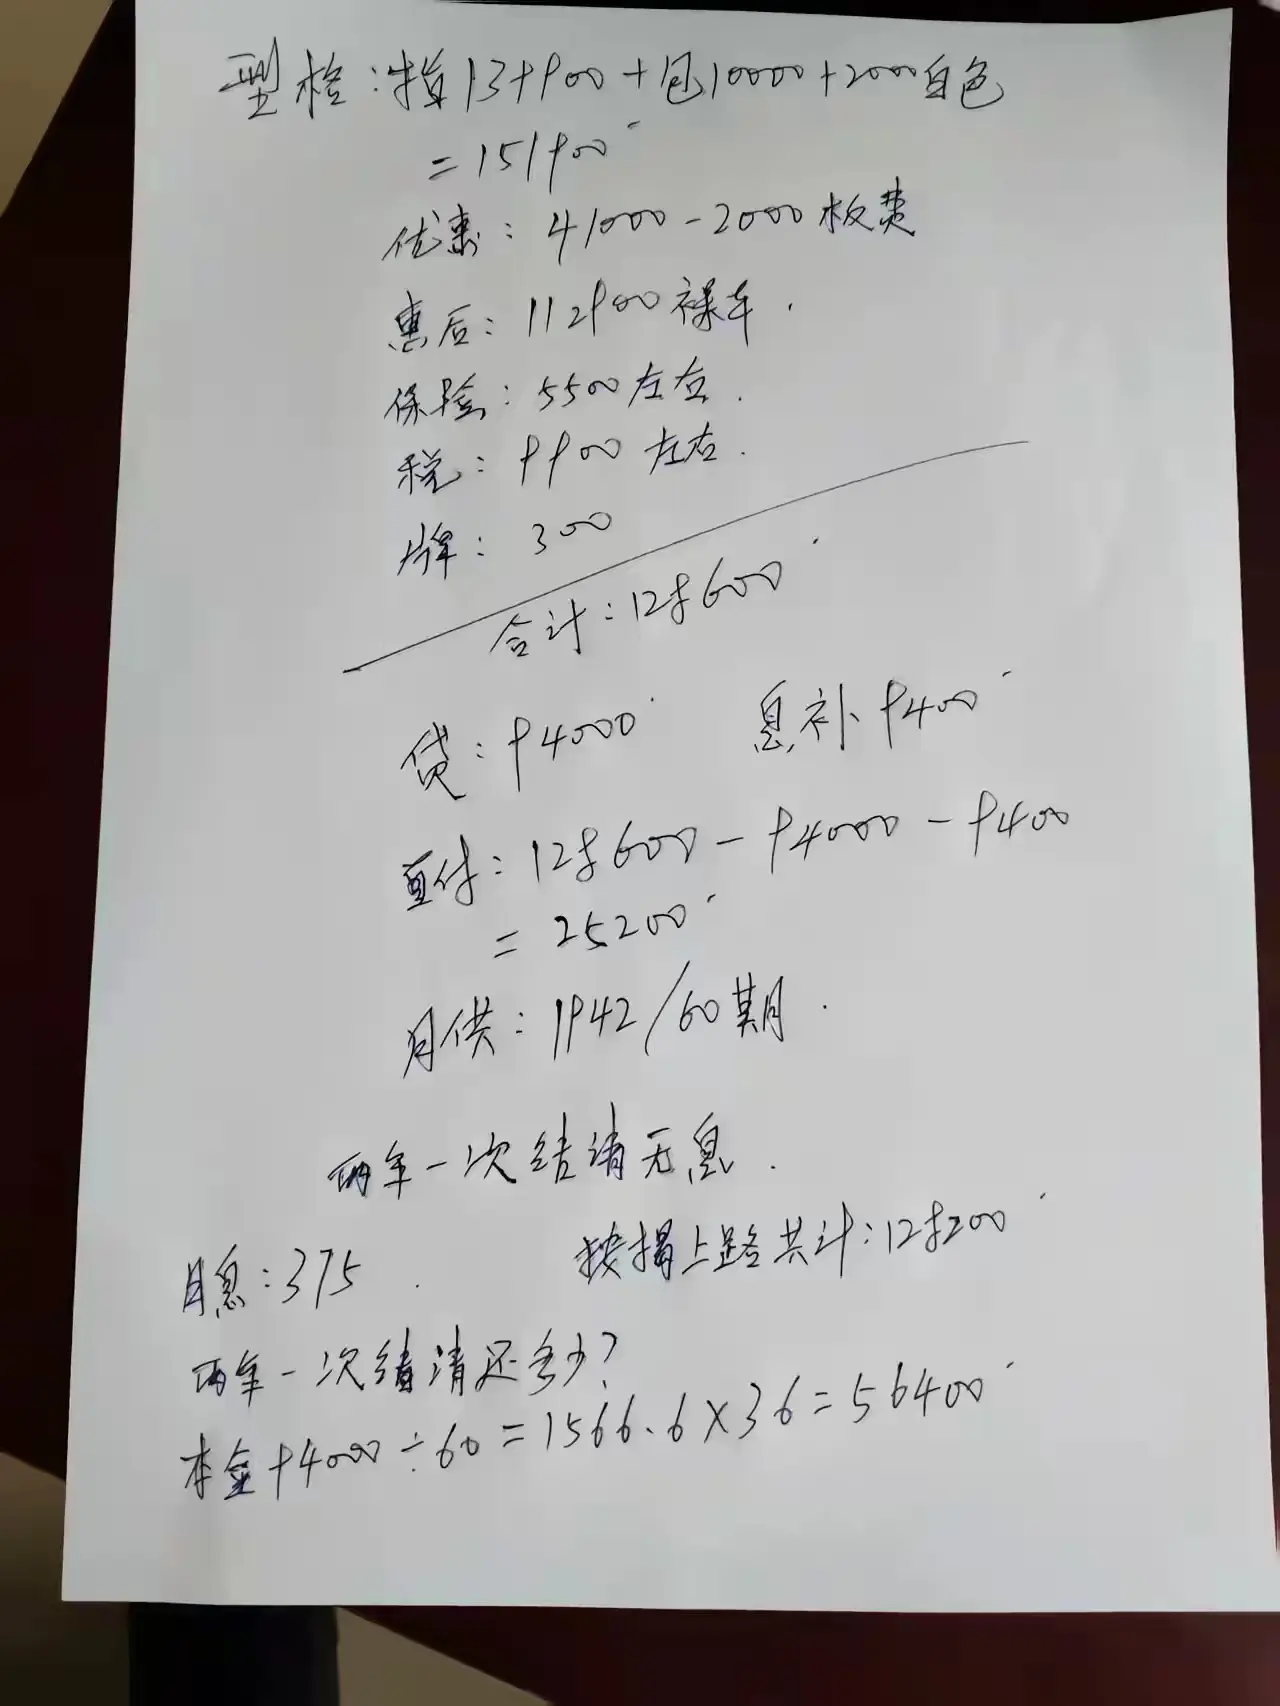 型格：指139900+包10000+2000白色
=151900
优惠：41000-2000板费
惠后：112900裸车.
保险：5500左右.
税：9900左右.
牌：300
合计：128600
贷：94000 息补9400
首付：128600-94000-9400
=25200
月供：1942/60期.
两年一次结清无息.
按揭上路共计：128200
月息：375.
两年一次结清还多少？
本金94000÷60=1566.6×36=56400